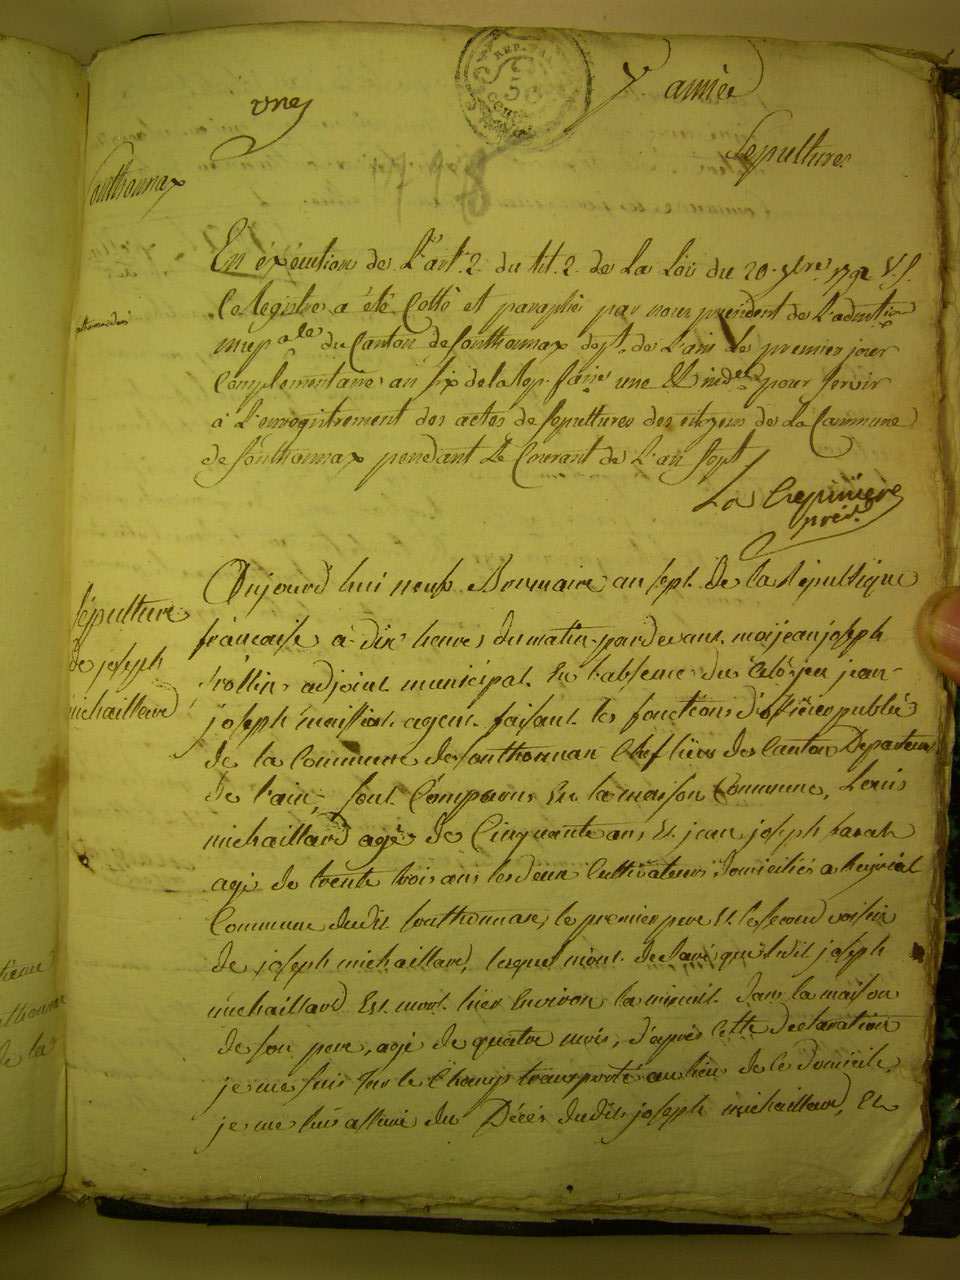 une
REP. FRA.
50
cent.
7e année
Sépultures
Sonthonnax
En éxécution de L'art. 2 du tit. 2 de La Loi du 20 7bre 1792 V.S.
Ce Registre a été Cotté et paraphé par nous president de L'admtion
mcipale du Canton de Sonthonnax dept. de L'ain Le premier jour
Complémentaire an six de la Rep. faise une & indble pour servir
à L'enregistrement des actes de Sepultures des citoyens de La Commune
de Sonthonnax pendant Le Courant de L'an Sept
La Crepiniere
prést.
Sépulture
de joseph
michaillard
Aujourd'hui neuf Brumaire an sept de la République
française à dix heures du matin pardevant moi jean joseph
trottin, adjoint municipal En l'absence du Citoyen jean
joseph maissiat agent faisant les fonctions d'officier public
de la Commune de Sonthonnax Chef lieu de Canton Departemt
de l'ain, sont Comparus En la maison Commune, Louis
michaillard agé de Cinquante ans Et jean joseph
agé de trente trois ans les deux Cultivateurs domiciliés a
Commune dudit Sonthonnax, le premier pere Et le second voisin
de joseph michaillard, lesquels m'ont declaré que ledit joseph
michaillard Est mort hier Environ la minuit dans la maison
de son pere, agé de quatre mois, d'après Cette declaration
je me suis sur le Champ transporté au lieu de ce domicile,
je me suis assuré du Décès dudit joseph michaillard, Et